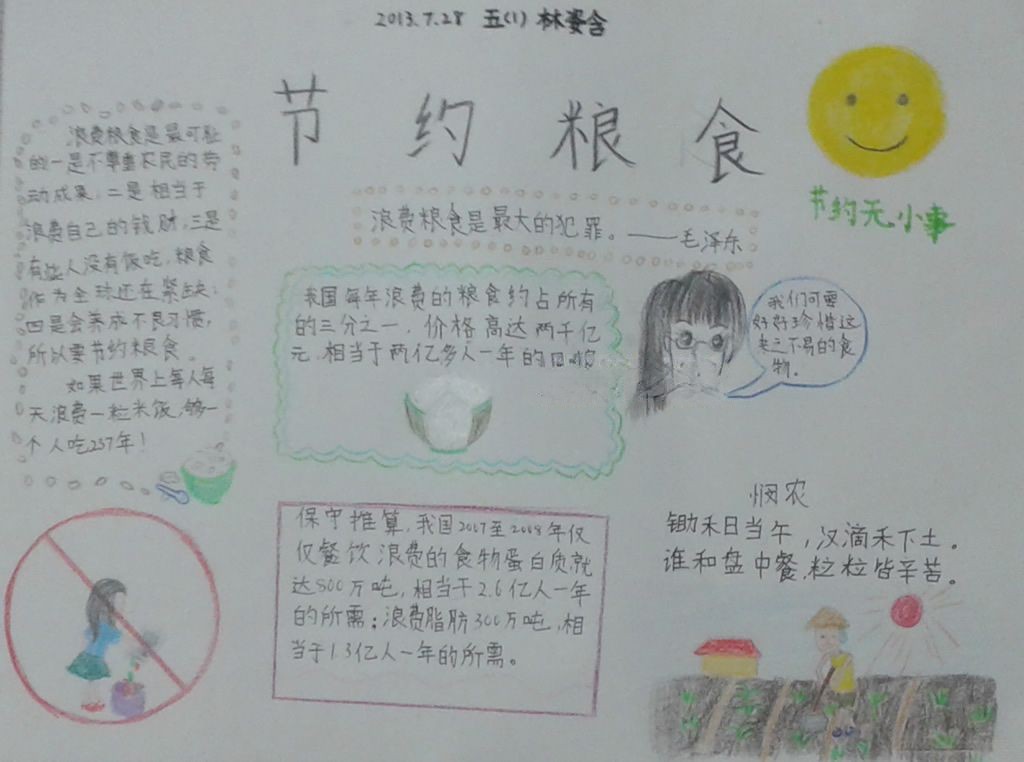 2013.7.28 五(1) 林姿含
节约粮食
节约无小事
浪费粮食是最大的犯罪。——毛泽东
浪费粮食是最可耻
的一是不尊重农民的劳
动成果,二是相当于
浪费自己的钱财,三是
有些人没有饭吃,粮食
作为全球还在紧缺;
四是会养成不良习惯,
所以要节约粮食。
如果世界上每人每
天浪费一粒米饭,够一
个人吃237年!
我国每年浪费的粮食约占所有
的三分之一,价格高达两千亿
元,相当于两亿多人一年的口粮
我们可要
好好珍惜这
来之不易的食
物。
保守推算,我国2007至2008年仅
仅餐饮浪费的食物蛋白质就
达800万吨,相当于2.6亿人一年
的所需;浪费脂肪300万吨,相
当于1.3亿人一年的所需。
悯农
锄禾日当午,汉滴禾下土。
谁和盘中餐,粒粒皆辛苦。